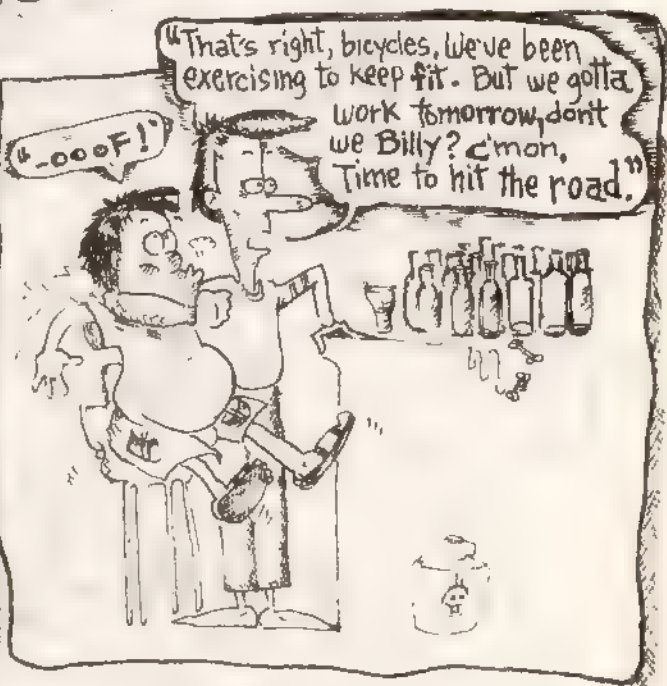 "That's right, bicycles, We've been
exercising to keep fit. But we gotta
work tomorrow, dont
we Billy? c'mon.
Time to hit the road."
"-oooF!"